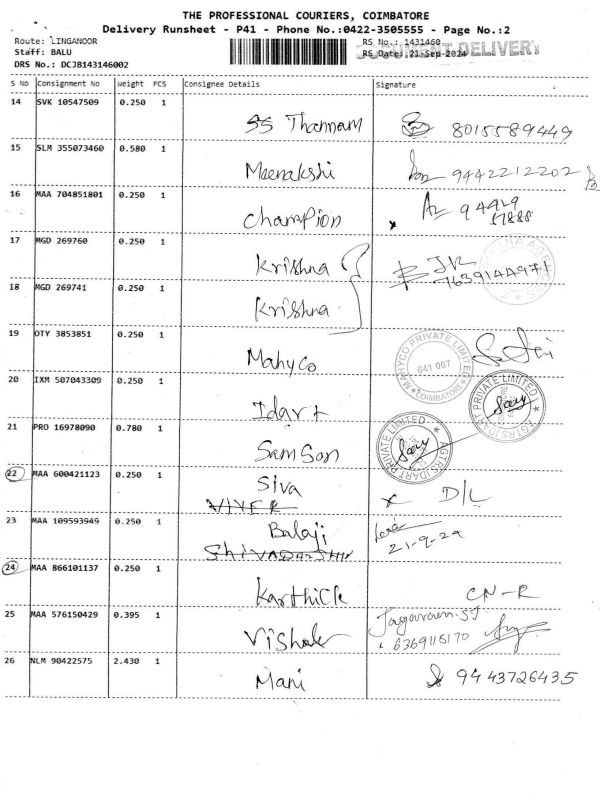 THE PROFESSIONAL COURIERS, COIMBATORE
Delivery Runsheet - P41 - Phone No.:0422-3505555 - Page No.:2
Route: LINGANOOR
RS No.: 1431460
Staff: BALU
RS Date: 21-Sep-2024
DELIVERY
DRS No.: DCJB143146002
S No Consignment No Weight PCS Consignee Details Signature
14 SVK 10547509 0.250 1
SS 8015589449
15 SLM 355073460 0.580 1
Meenakshi 9442212202
16 MAA 704851801 0.250 1
Champion 94429
57888
17 MGD 269760 0.250 1
Krishna JK
18 MGD 269741 0.250 1
Krishna
19 OTY 3853851 0.250 1
Mahyco
MAHYCO PRIVATE LIMITED
641 007
COIMBATORE
20 IXM 507043309 0.250 1
Idart
AGTRSIDART PRIVATE LIMITED
21 PRO 16978090 0.780 1
Samson
AGTRSIDART PRIVATE LIMITED
22 MAA 600421123 0.250 1
Siva D/L
VIVEK
23 MAA 109593949 0.250 1
Balaji
21-9-24
24 MAA 866101137 0.250 1
Karthick CN-R
25 MAA 576150429 0.395 1
Vishal 6369115170
26 NLM 90422575 2.430 1
Mani 9443726435